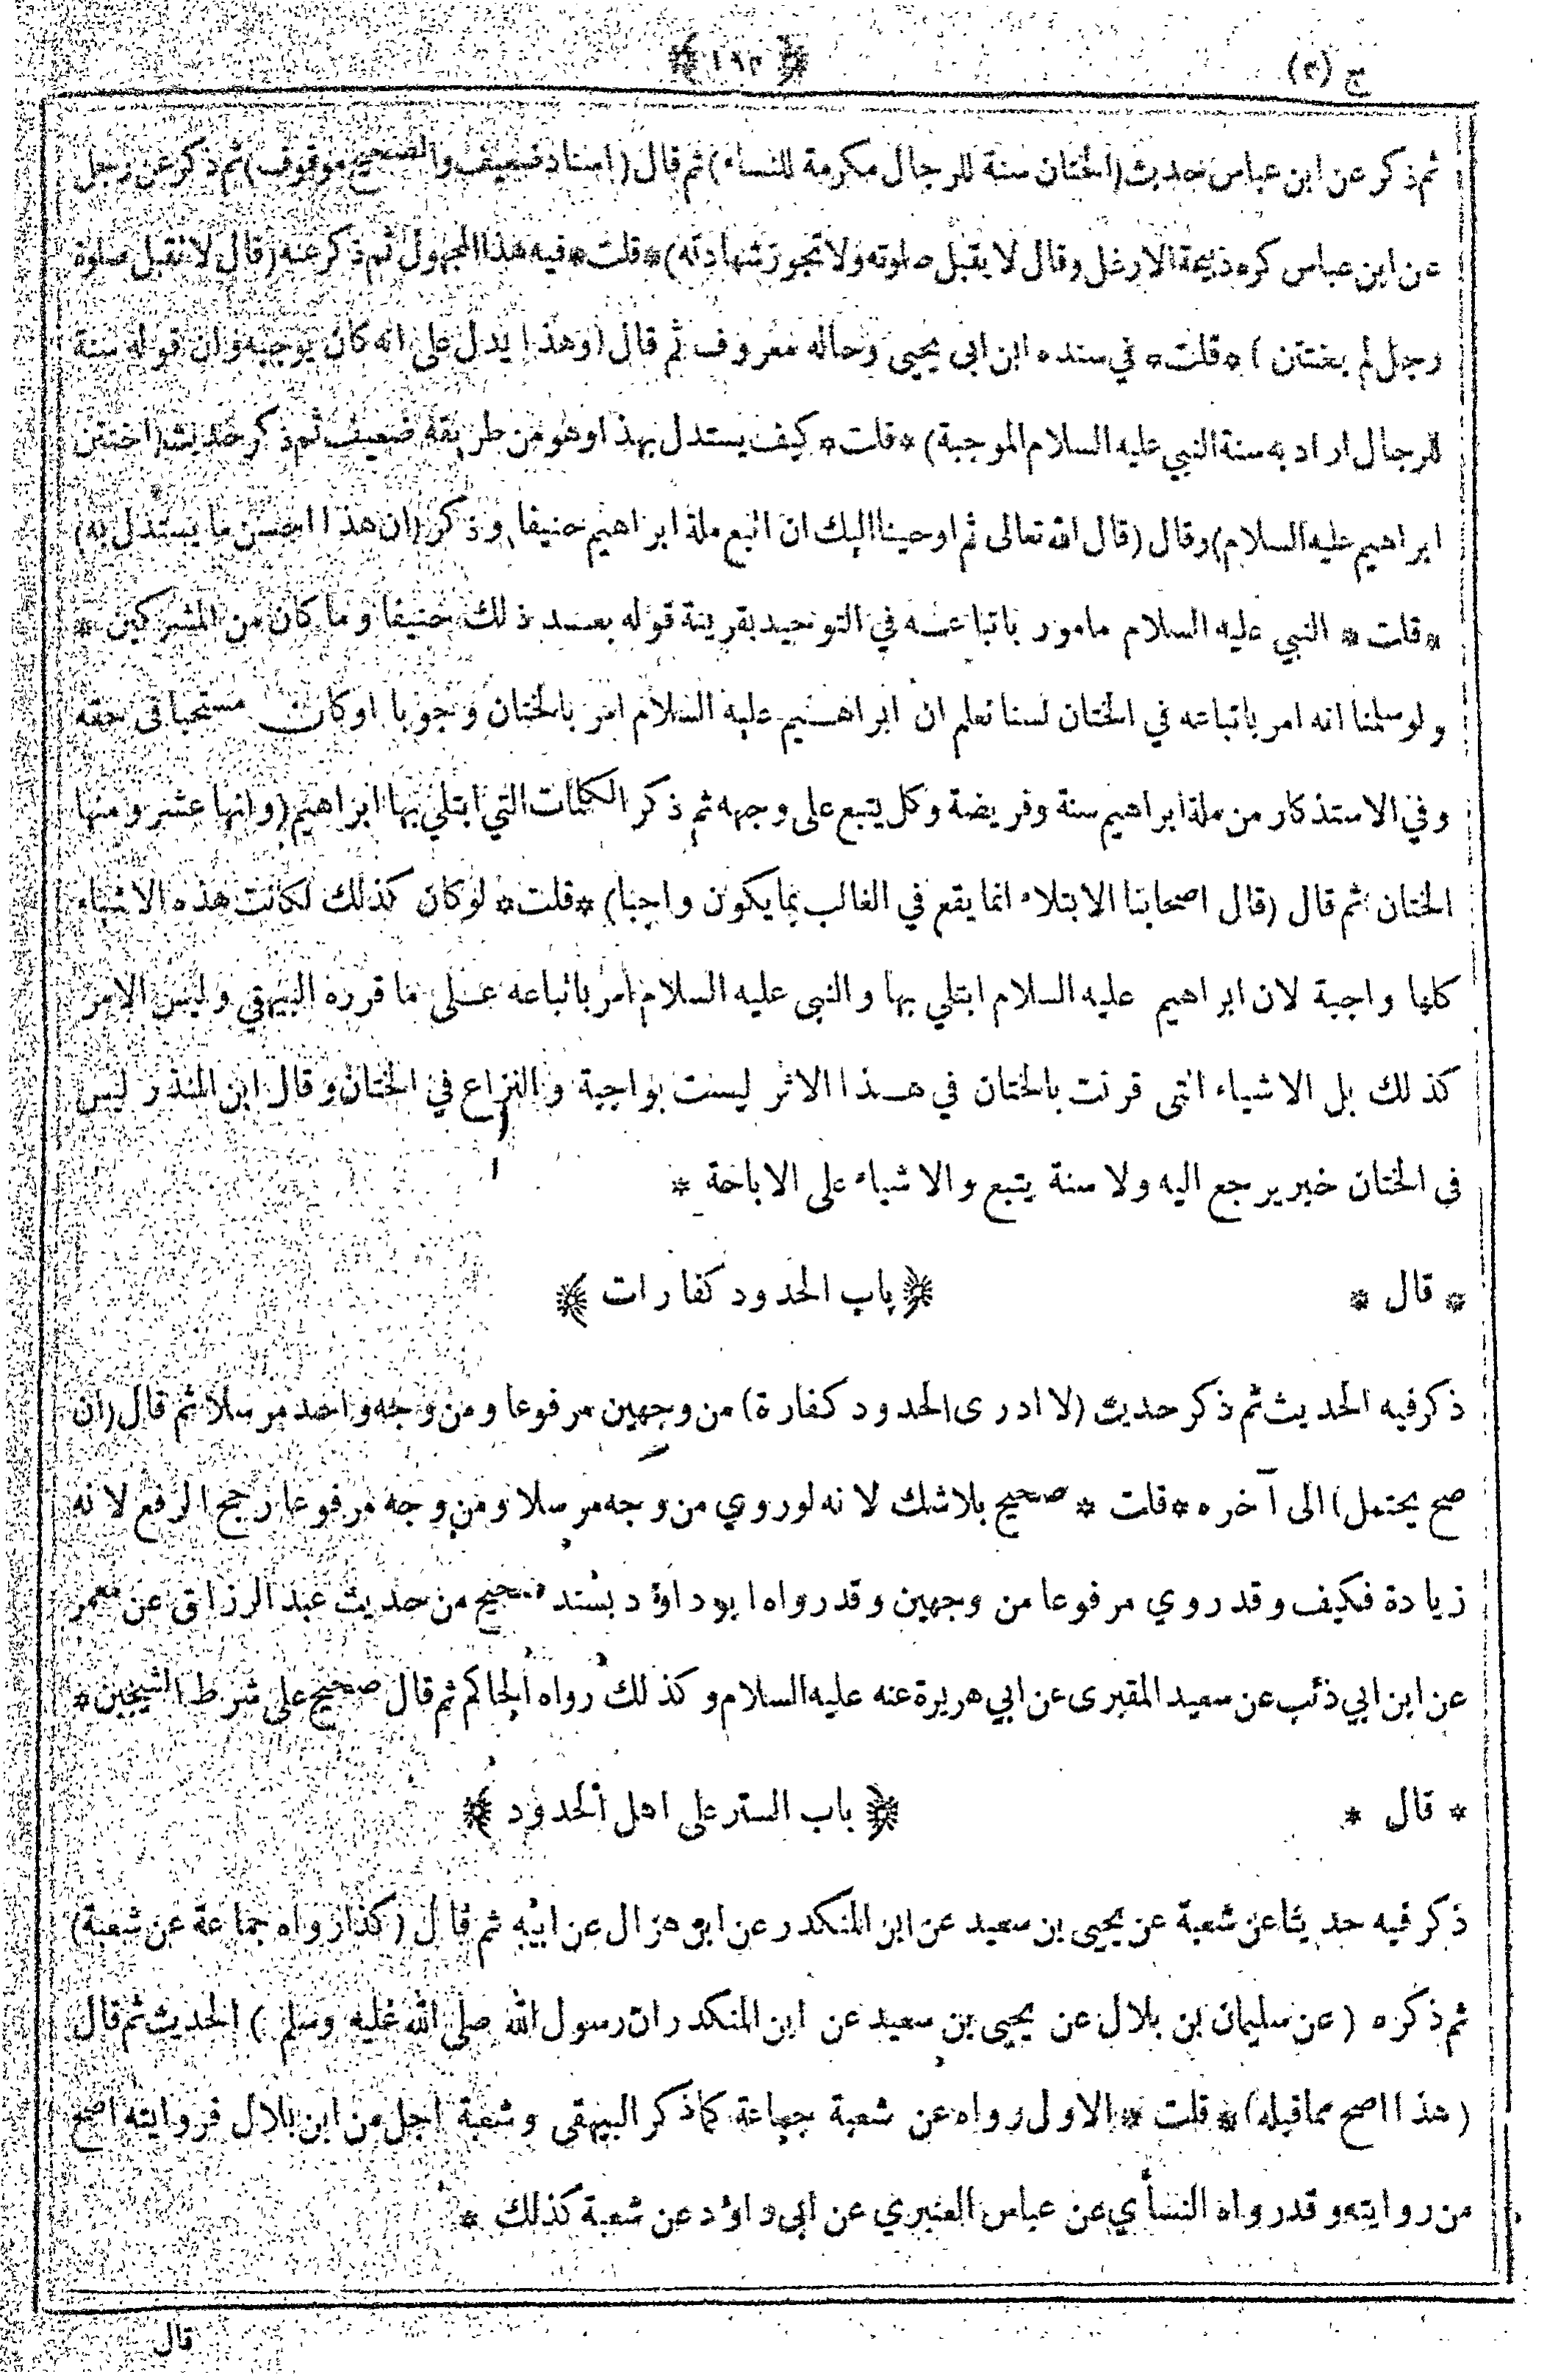 ج (٢)
﴿ ١٩٢ ﴾
ثم ذكر عن ابن عباس حديث (الختان سنة للرجال مكرمة للنساء) ثم قال (اسناد ضعيف والصحيح موقوف) ثم ذكر عن رجل
عن ابن عباس كره ذبيحة الارغل وقال لا يقبل صلوته ولا تجوز شهادته) *قلت* فيه هذا المجهول ثم ذكر عنه (قال لا تقبل صلوة
رجل لم يختتن) *قلت* في سنده ابن ابى يحيى وحاله معروف ثم قال (وهذا يدل على انه كان يوجبه وان قوله سنة
للرجال اراد به سنة النبي عليه السلام الموجبة) *قلت* كيف يستدل بهذا وهو من طريقه ضعيف ثم ذكر حديث (اختتن
ابراهيم عليه السلام) وقال (قال الله تعالى ثم اوحينا اليك ان اتبع ملة ابراهيم حنيفا وذكر (ان هذا احسن ما يستدل به)
*قلت* النبي عليه السلام مامور باتباعه في التوحيد بقرينة قوله بعد ذلك حنيفا وما كان من المشركين *
ولو سلمنا انه امر باتباعه في الختان لسنا نعلم ان ابراهيم عليه السلام امر بالختان وجوبا او كان مستحبا فى حقه
وفي الاستذكار من ملة ابراهيم سنة وفريضة وكل يتبع على وجهه ثم ذكر الكلمات التي ابتلي بها ابراهيم (وانها عشر ومنها
الختان ثم قال (قال اصحابنا الابتلاء انما يقع في الغالب بما يكون واجبا) *قلت* لو كان كذلك لكانت هذه الاشياء
كلها واجبة لان ابراهيم عليه السلام ابتلي بها والنبى عليه السلام امر باتباعه على ما قرره البيهقي وليس الامر
كذلك بل الاشياء التى قرنت بالختان في هذا الاثر ليست بواجبة والنزاع في الختان وقال ابن المنذر ليس
فى الختان خبر يرجع اليه ولا سنة يتبع والاشياء على الاباحة *
* قال * ﴿ باب الحدود كفارات ﴾
ذكر فيه الحديث ثم ذكر حديث (لا ادرى الحدود كفارة) من وجهين مرفوعا ومن وجه واحد مرسلا ثم قال (ان
صح يحتمل) الى آخره *قلت* صحيح بلا شك لانه لو روي من وجه مرسلا ومن وجه مرفوعا رجح الرفع لانه
زيادة فكيف وقد روي مرفوعا من وجهين وقد رواه ابوداؤد بسند صحيح من حديث عبد الرزاق عن معمر
عن ابن ابي ذئب عن سعيد المقبرى عن ابي هريرة عنه عليه السلام وكذلك رواه الحاكم ثم قال صحيح على شرط الشيخين *
* قال * ﴿ باب الستر على اهل الحدود ﴾
ذكر فيه حديثا عن شعبة عن يحيى بن سعيد عن ابن المنكدر عن ابن هزال عن ابيه ثم قال (كذا رواه جماعة عن شعبة)
ثم ذكره (عن سليمان بن بلال عن يحيى بن سعيد عن ابن المنكدر ان رسول الله صلى الله عليه وسلم) الحديث ثم قال
(هذا اصح مما قبله) *قلت* الاول رواه عن شعبة جماعة كما ذكر البيهقى وشعبة اجل من ابن بلال فروايته اصح
من روايته وقد رواه النسأي عن عباس العنبري عن ابى داؤد عن شعبة كذلك *
قال